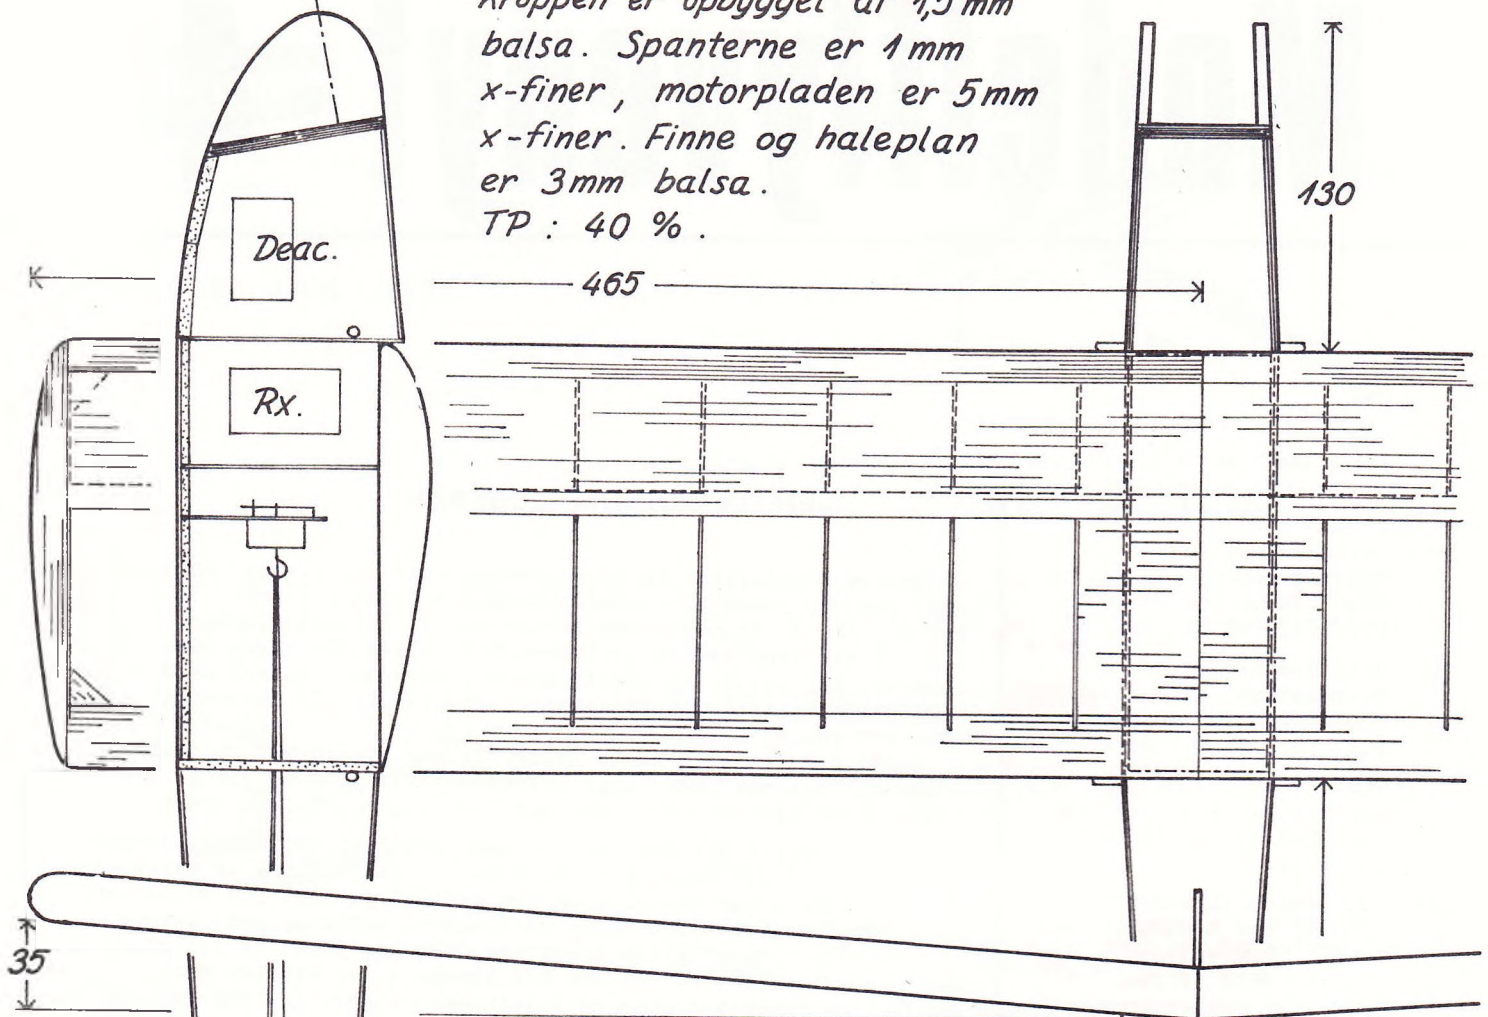 Kroppen er opbygget af 1,5 mm
balsa. Spanterne er 1 mm
x-finer, motorpladen er 5 mm
x-finer. Finne og haleplan
er 3 mm balsa.
TP : 40 %.
130
Deac.
465
Rx.
35